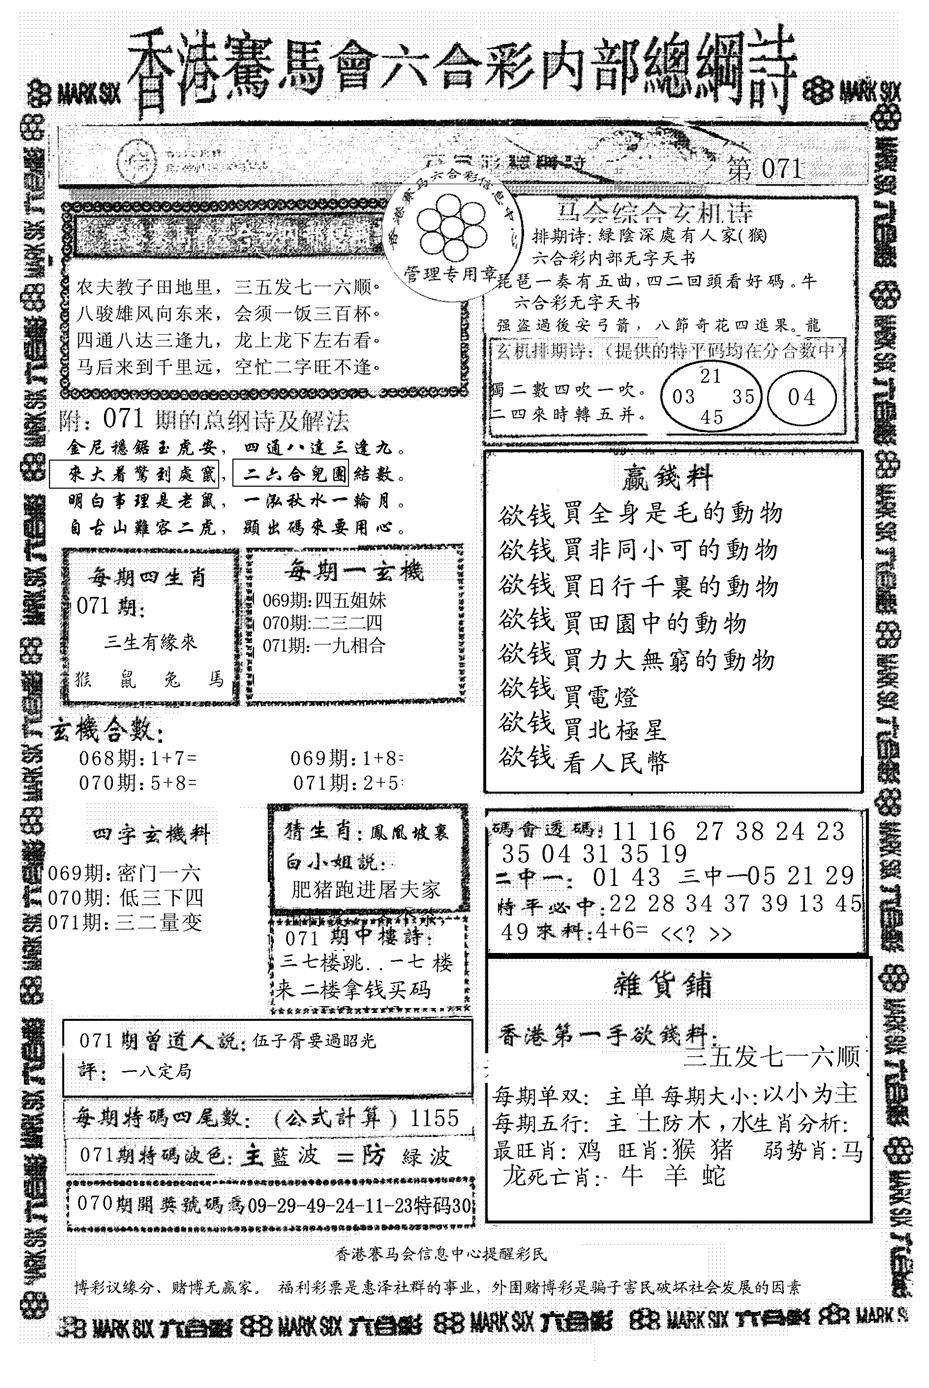 香港賽馬會六合彩内部總綱詩
MARK SIX
MARK SIX
第 071
香港赛马六合彩信息中
管理专用章
农夫教子田地里，三五发七一六顺。
八骏雄风向东来，会须一饭三百杯。
四通八达三逢九，龙上龙下左右看。
马后来到千里远，空忙二字旺不逢。
附：071 期的总纲诗及解法
金尼穩鋸玉虎安，四通八達三逢九。
來大着驚到處竄，二六合兒團結數。
明白事理是老鼠，一泓秋水一輪月。
自古山難容二虎，顯出碼來要用心。
马会综合玄机诗
排期诗：緑陰深處有人家(猴)
六合彩内部无字天书
琵琶一奏有五曲，四二回頭看好碼。牛
六合彩无字天书
强盗過後安弓箭，八節奇花四進果。龍
玄机排期诗：（提供的特平码均在分合数中）
獨二數四吹一吹。
二四來時轉五并。
21
03 35
45
04
每期四生肖
071 期：
三生有緣來
猴 鼠 兔 馬
每期一玄機
069期:四五姐妹
070期:二三二四
071期:一九相合
玄機合數：
068期:1+7=
069期:1+8=
070期:5+8=
071期:2+5=
四字玄機料
069期:密门一六
070期:低三下四
071期:三二量变
猜生肖：鳳凰坡裏
白小姐説：
肥猪跑进屠夫家
071 期中樓詩：
三七楼跳..一七 楼
来 二楼拿钱买码
071期曾道人説：伍子胥要過昭光
評：一八定局
每期特碼四尾數：(公式計算) 1155
071期特碼波色：主 藍 波 = 防 緑 波
070期開奬號碼爲09-29-49-24-11-23特码30
贏錢料
欲钱買全身是毛的動物
欲钱買非同小可的動物
欲钱買日行千裏的動物
欲钱買田園中的動物
欲钱買力大無窮的動物
欲钱買電燈
欲钱買北極星
欲钱看人民幣
碼會透碼：11 16 27 38 24 23
35 04 31 35 19
二中一：01 43 三中一05 21 29
特平必中：22 28 34 37 39 13 45
49 來料：4+6= <<? >>
雜貨鋪
香港第一手欲錢料：
三五发七一六顺
每期单双：主单 每期大小：以小为主
每期五行：主 土防木，水生肖分析：
最旺肖：鸡 旺肖：猴 猪 弱势肖：马
龙死亡肖：牛 羊 蛇
香港赛马会信息中心提醒彩民
博彩议缘分、赌博无赢家。 福利彩票是惠泽社群的事业，外围赌博彩是骗子害民破坏社会发展的因素
MARK SIX 六合彩 MARK SIX 六合彩 MARK SIX 六合彩 MARK SIX 六合彩 MARK SIX